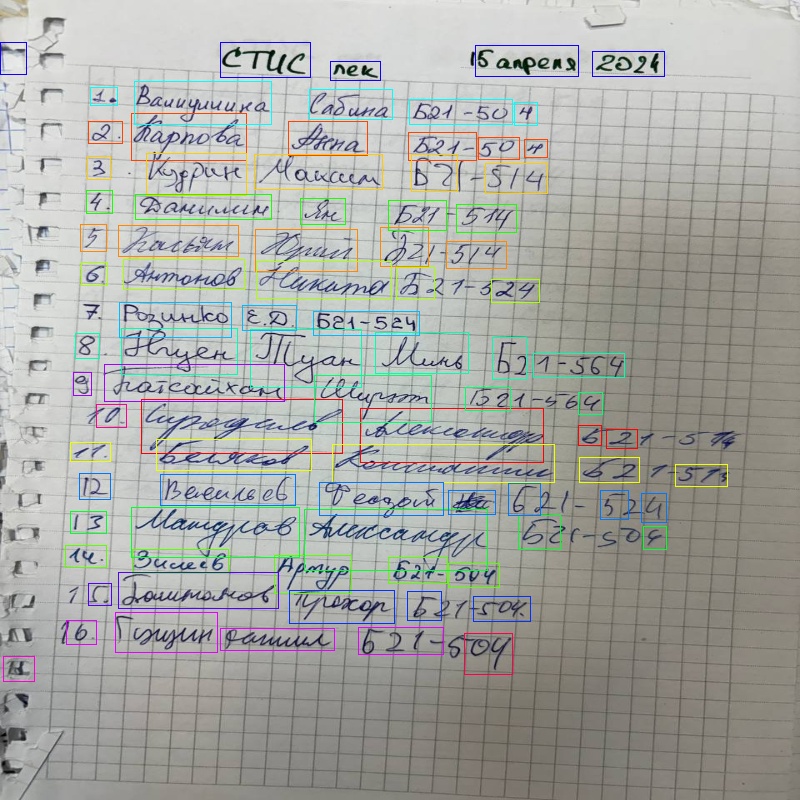 СТИС лек 15 апреля 2024
1. Валиуллина Сабина Б21-504
2. Карпова Анна Б21-504
3. Кудрин Максим Б21-514
4. Данилин Ян Б21-514
5 Касьян Юрий Б21-514
6. Антонов Никита Б21-524
7. Розинко Е.Д. Б21-524
8. Нгуен Туан Минь Б21-564
9 Батсайхан Б21-564
10. Александр Б21-514
11. Беляков Константин Б21-513
12 Васильев Феодот Б21-524
13 Мандров Александр Б21-504
14. Артур Б21-504
15. Прохор Б21-504
16. Б21-504